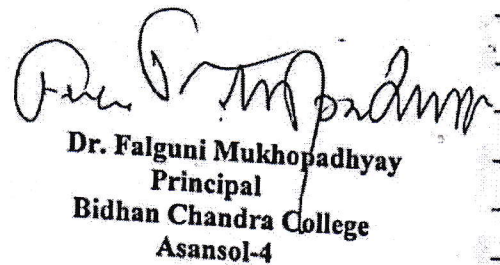 Dr. Falguni Mukhopadhyay
Principal
Bidhan Chandra College
Asansol-4